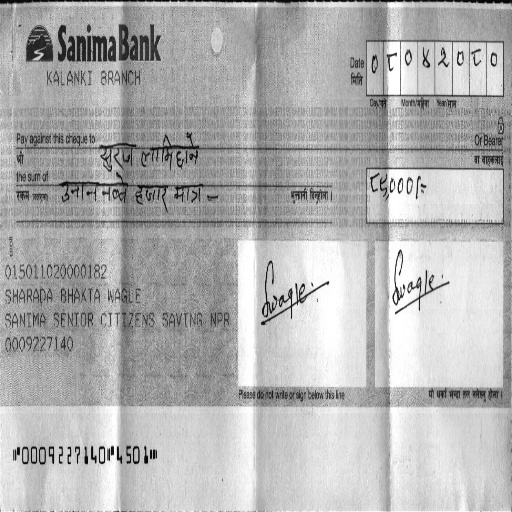 Sanima Bank
KALANKI BRANCH
Date
मिति
०८०४२०८०
Day/गते Month/महिना Year/साल
Pay against this cheque to
श्री
सुरज लामिछाने
Or Bearer
वा वाहकलाई
the sum of
रकम
उनान नब्बे हजार मात्र –
भुक्तानी दिनुहोला ।
८९,०००/-
015011020000182
SHARADA BHAKTA WAGLE
SANIMA SENIOR CITIZENS SAVING NPR
0009227140
Swagle.
Swagle.
Please do not write or sign below this line
⑈0009227140⑈4501⑈